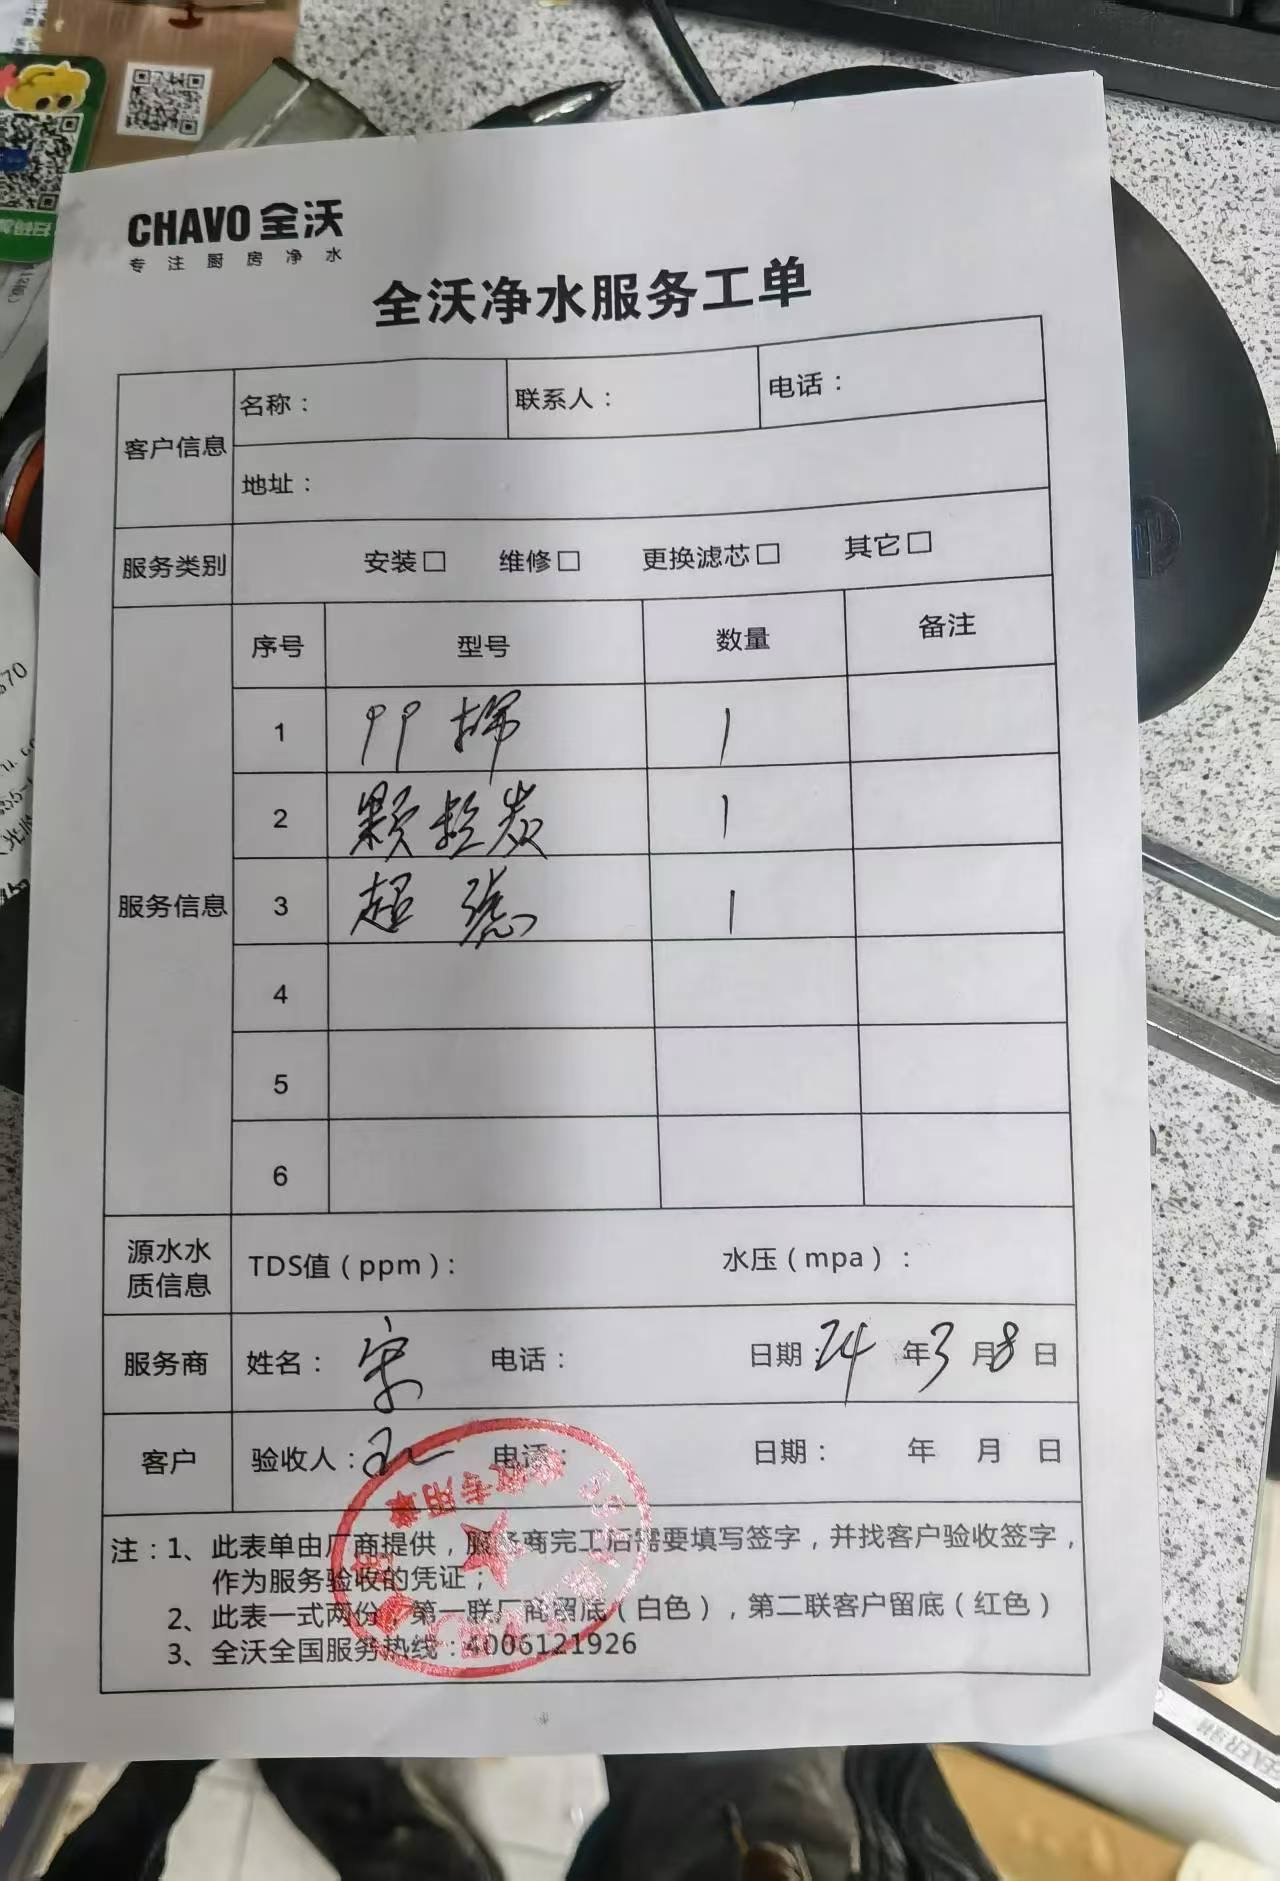 CHAVO 全沃
专注厨房净水
全沃净水服务工单
客户信息
名称： 联系人： 电话：
地址：
服务类别 安装□ 维修□ 更换滤芯□ 其它□
服务信息
序号 型号 数量 备注
1 PP 棉 1
2 颗粒炭 1
3 超滤 1
4
5
6
源水水质信息 TDS值（ppm）： 水压（mpa）：
服务商 姓名：宋 电话： 日期：24年3月8日
客户 验收人： 电话： 日期： 年 月 日
注：1、此表单由厂商提供，服务商完工后需要填写签字，并找客户验收签字，
作为服务验收的凭证；
2、此表一式两份，第一联厂商留底（白色），第二联客户留底（红色）
3、全沃全国服务热线：4006121926
验收专用章